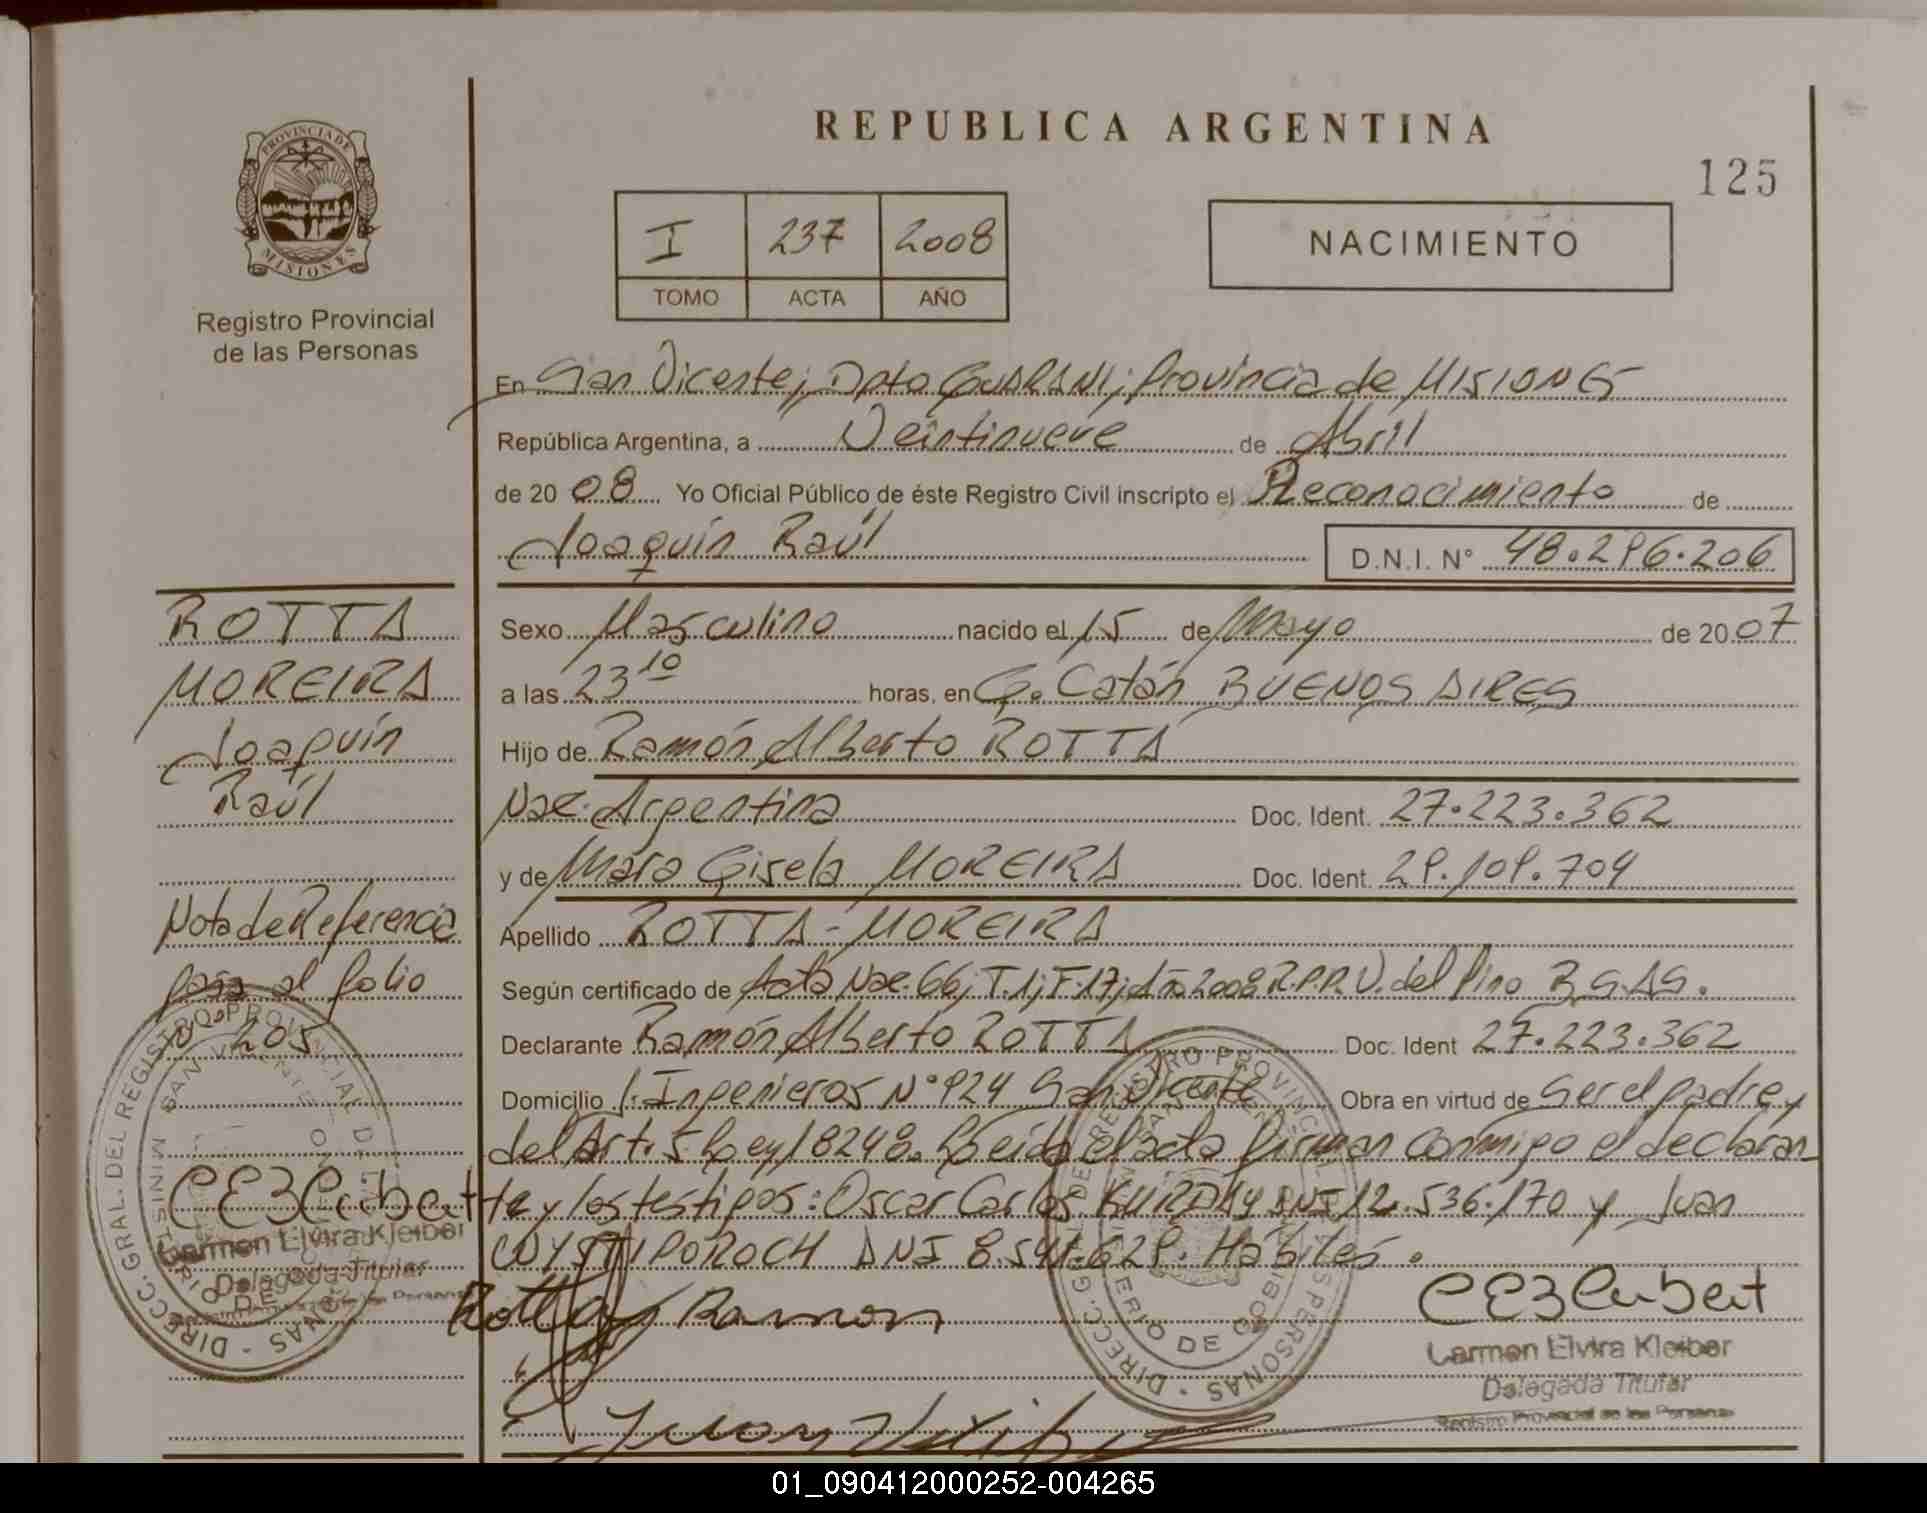 REPUBLICA ARGENTINA
125
PROVINCIA DE
MISIONES
Registro Provincial
de las Personas
I 237 2008
TOMO ACTA AÑO
NACIMIENTO
En San Vicente; Dpto GUARANI; Provincia de MISIONES
República Argentina, a Veintinueve de Abril
de 20 08 Yo Oficial Público de éste Registro Civil inscripto el Reconocimiento de
Joaquín Raúl D.N.I. N° 48.296.206
Sexo Masculino nacido el 15 de Mayo de 20 07
a las 23 10 horas, en G. Catán BUENOS AIRES
Hijo de Ramón Alberto ROTTA
Nac. Argentina Doc. Ident. 27.223.362
y de Mara Gisela MOREIRA Doc. Ident. 29.109.704
Apellido ROTTA - MOREIRA
Según certificado de Acta Nac. 66; T.1; F.17; Año 2008 R.P.P. V. del Pino BS.AS.
Declarante Ramón Alberto ROTTA Doc. Ident 27.223.362
Domicilio J. Ingenieros N° 924 San Vicente Obra en virtud de Ser el padre y
del Art. 5 Ley 18248. Leída el acta firman conmigo el declaran
te y los testigos: Oscar Carlos DNI 12.536.170 y Juan
DNI 8.541.629. Hábiles.
Rotta Ramon
Carmen Elvira Kleiber
Delegada Titular
Registro Provincial de las Personas
ROTTA
MOREIRA
Joaquín
Raúl
Nota de Referencia
pasa al folio
N° 205
Carmen Elvira Kleiber
Delegada Titular
DIRECC. GRAL. DEL REGISTRO PROVINCIAL DE LAS PERSONAS
SAN VICENTE
MINISTERIO DE GOBIERNO
01_090412000252-004265